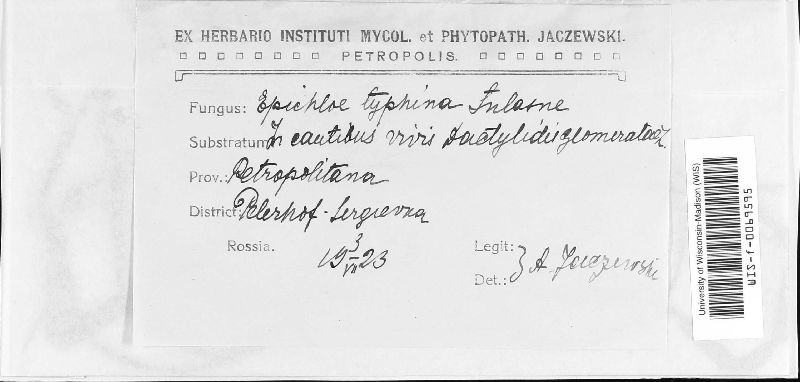 EX HERBARIO INSTITUTI MYCOL. et PHYTOPATH. JACZEWSKI.
PETROPOLIS.
Fungus: Epichloe typhina Tulasne
Substratum: In cautibus vivis Dactylidis glomeratae L.
Prov.: Petropolitana
District: Peterhof-Sergievka
Rossia. 19 3/VII 23
Legit:
Det.: A. Jaczewski
University of Wisconsin-Madison (WIS)
WIS-f-0069595